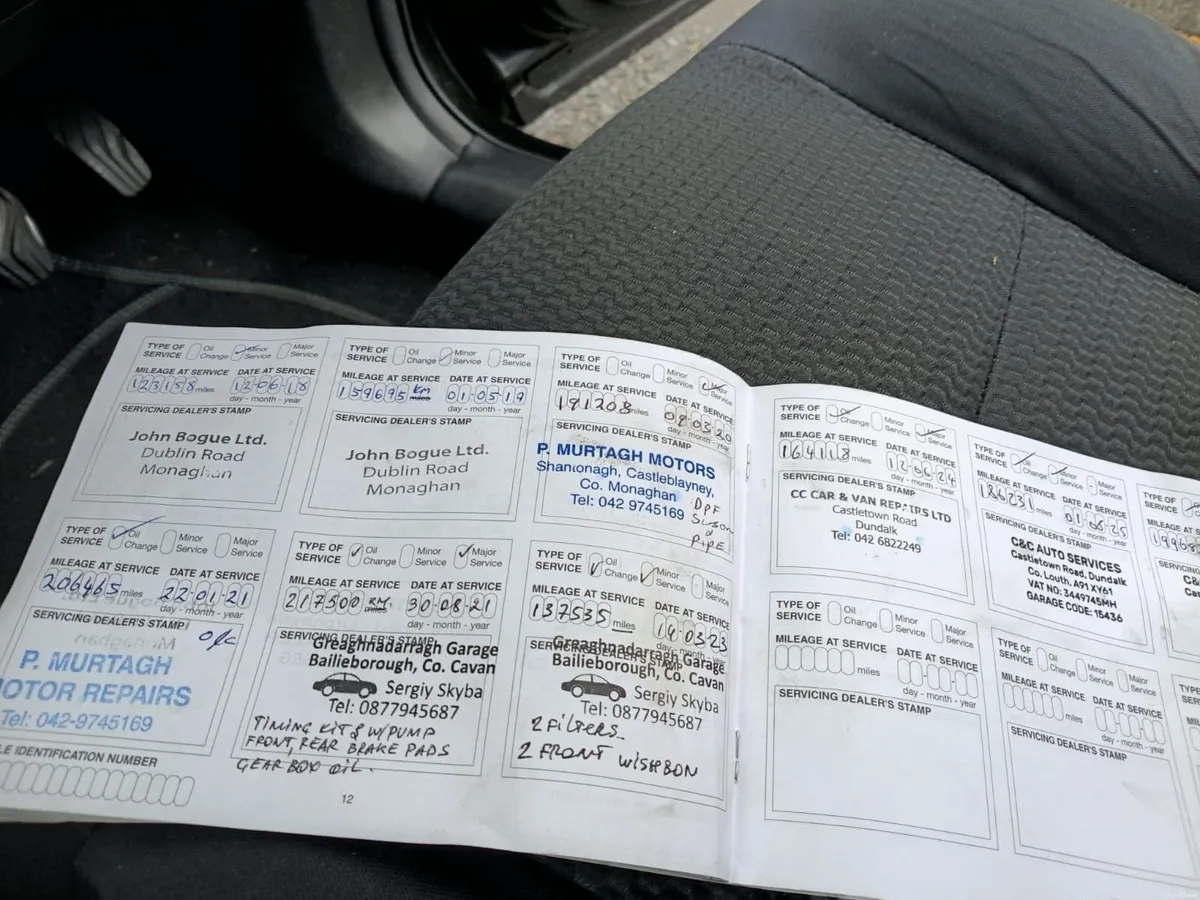 TYPE OF SERVICE Oil Change Minor Service Major Service
MILEAGE AT SERVICE DATE AT SERVICE
123158 miles 12-06-18
day - month - year
SERVICING DEALER'S STAMP
John Bogue Ltd.
Dublin Road
Monaghan
TYPE OF SERVICE Oil Change Minor Service Major Service
MILEAGE AT SERVICE DATE AT SERVICE
159695 KM miles 01-05-19
day - month - year
SERVICING DEALER'S STAMP
John Bogue Ltd.
Dublin Road
Monaghan
TYPE OF SERVICE Oil Change Minor Service Major Service
MILEAGE AT SERVICE DATE AT SERVICE
191208 miles 09-03-20
day - month - year
SERVICING DEALER'S STAMP
P. MURTAGH MOTORS
Shantonagh, Castleblayney,
Co. Monaghan
Tel: 042 9745169
DPF
PIPE
TYPE OF SERVICE Oil Change Minor Service Major Service
MILEAGE AT SERVICE DATE AT SERVICE
206465 miles 22-01-21
day - month - year
SERVICING DEALER'S STAMP
P. MURTAGH
MOTOR REPAIRS
Tel: 042-9745169
TYPE OF SERVICE Oil Change Minor Service Major Service
MILEAGE AT SERVICE DATE AT SERVICE
217500 KM. miles 30-08-21
day - month - year
SERVICING DEALER'S STAMP
Greaghnadarragh Garage
Bailieborough, Co. Cavan
Sergiy Skyba
Tel: 0877945687
TIMING KIT & W/PUMP
FRONT, REAR BRAKE PADS
GEAR BOX OIL.
TYPE OF SERVICE Oil Change Minor Service Major Service
MILEAGE AT SERVICE DATE AT SERVICE
137535 miles 14-03-23
day - month - year
SERVICING DEALER'S STAMP
Greaghnadarragh Garage
Bailieborough, Co. Cavan
Sergiy Skyba
Tel: 0877945687
2 FILTERS
2 FRONT WISHBON
LE IDENTIFICATION NUMBER
12
TYPE OF SERVICE Oil Change Minor Service Major Service
MILEAGE AT SERVICE DATE AT SERVICE
164118 miles 12-06-24
day - month - year
SERVICING DEALER'S STAMP
CC CAR & VAN REPAIRS LTD
Castletown Road
Dundalk
Tel: 042 6822249
TYPE OF SERVICE Oil Change Minor Service Major Service
MILEAGE AT SERVICE DATE AT SERVICE
186231 miles 01-08-25
day - month - year
SERVICING DEALER'S STAMP
C&C AUTO SERVICES
Castletown Road, Dundalk
Co. Louth, A91 XY61
VAT NO: 3449745MH
GARAGE CODE: 15436
TYPE OF SERVICE
MILEAGE AT S
SERVICING
TYPE OF SERVICE Oil Change Minor Service Major Service
MILEAGE AT SERVICE DATE AT SERVICE
miles
day - month - year
SERVICING DEALER'S STAMP
TYPE OF SERVICE Oil Change Minor Service Major Service
MILEAGE AT SERVICE DATE AT SERVICE
miles
day - month - year
SERVICING DEALER'S STAMP